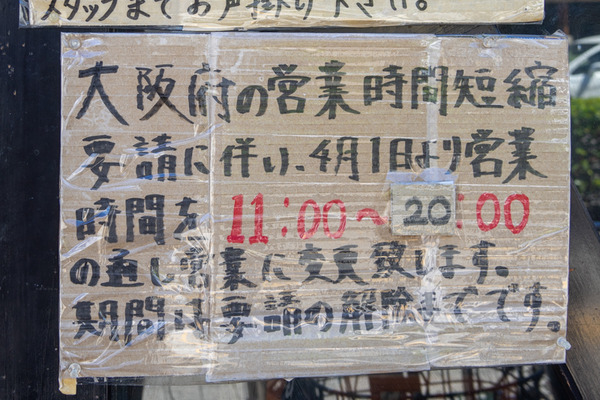 スタッフまでお声掛け下さい。
大阪府の営業時間短縮
要請に伴い、4月1日より営業
時間を 11:00〜20:00
の通し営業に変更致します。
期間は要請の解除までです。